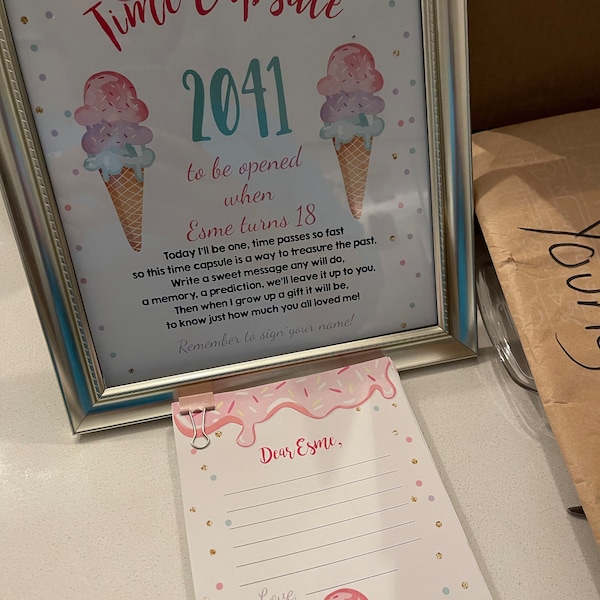 Time Capsule
2041
to be opened
when
Esme turns 18
Today I'll be one, time passes so fast
so this time capsule is a way to treasure the past.
Write a sweet message any will do,
a memory, a prediction, we'll leave it up to you.
Then when I grow up a gift it will be,
to know just how much you all loved me!
Remember to sign your name!
Dear Esme,
Love,